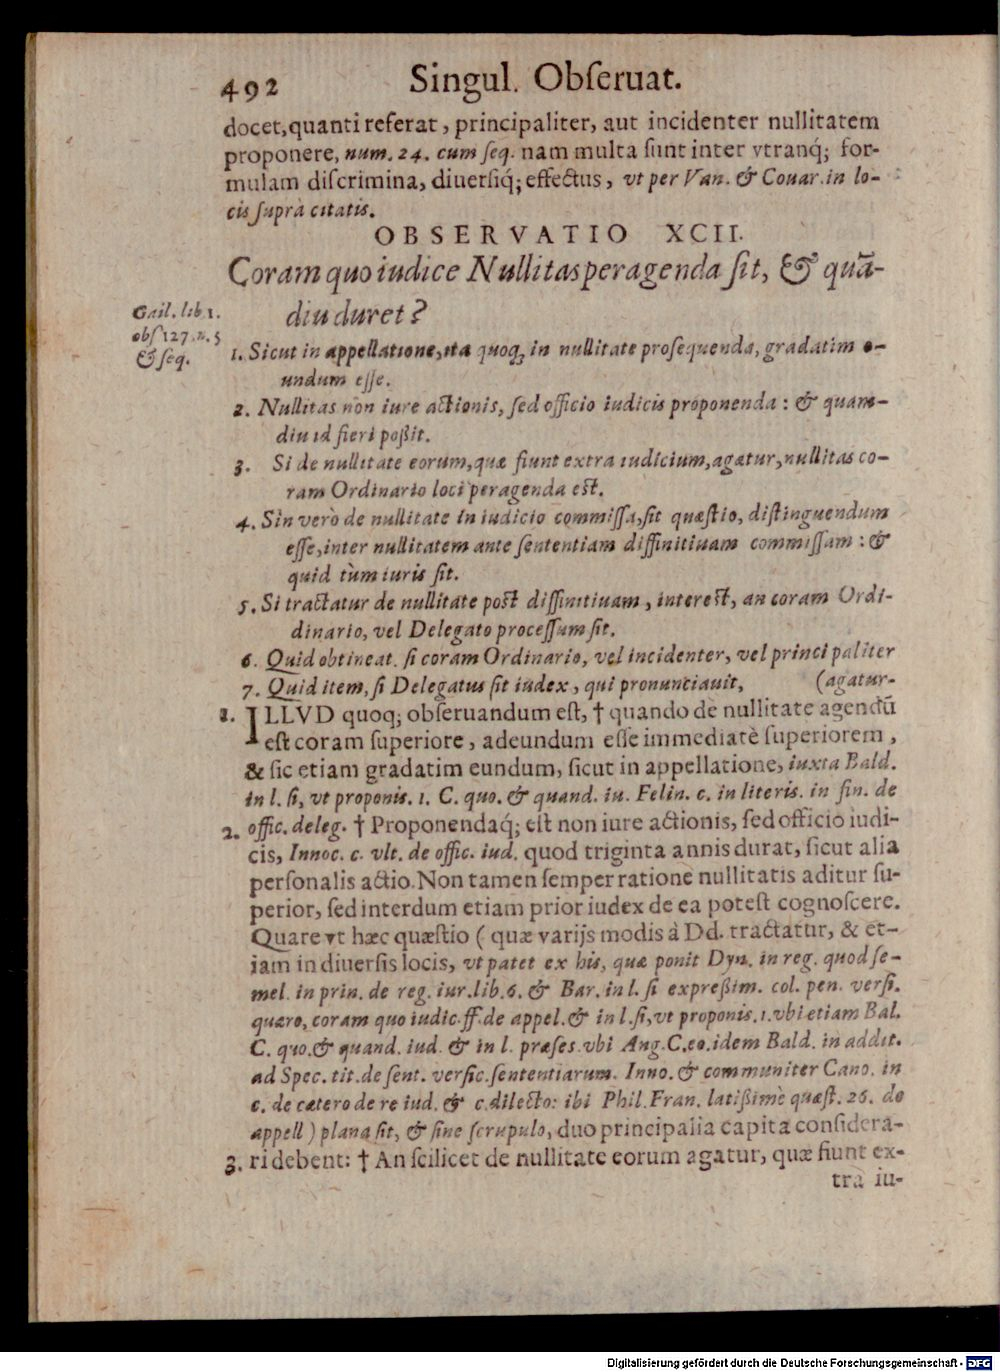 492 Singul. Obſeruat.
docet,quanti referat, principaliter, aut incidenter nullitatem
proponere, num. 24. cum ſeq. nam multa ſunt inter vtranq́; for-
mulam diſcrimina, diuerſiq́; effectus, vt per Van. & Couar. in lo-
cis ſuprà citatis.
OBSERVATIO XCII.
Coram quo iudice Nullitas peragenda ſit, & quā-
diu duret?
Gail. lib. 1.
obſ 127. n. 5
& ſeq.
1. Sicut in appellatione, ita quoq; in nullitate proſequenda, gradatim e-
undum eſſe.
2. Nullitas non iure actionis, ſed officio iudicis proponenda : & quam-
diu id fieri poßit.
3. Si de nullitate eorum, quæ fiunt extra iudicium, agatur, nullitas co-
ram Ordinario loci peragenda eſt.
4. Sin verò de nullitate in iudicio commiſſa, ſit quæſtio, diſtinguendum
eſſe, inter nullitatem ante ſententiam diffinitiuam commiſſam : &
quid tùm iuris ſit.
5. Si tractatur de nullitate poſt diffinitiuam, intereſt, an coram Ordi-
dinario, vel Delegato proceſſum ſit.
6. Quid obtineat. ſi coram Ordinario, vel incidenter, vel principaliter
7. Quid item, ſi Delegatus ſit iudex, qui pronunciauit, (agatur-
1. ILLVD quoq; obſeruandum eſt, † quando de nullitate agendū
eſt coram ſuperiore, adeundum eſſe immediatè ſuperiorem,
& ſic etiam gradatim eundum, ſicut in appellatione, iuxta Bald.
in l. ſi, vt proponis. 1. C. quo. & quand. iu. Felin. c. in literis. in fin. de
2. offic. deleg. † Proponendaq́; eſt non iure actionis, ſed officio iudi-
cis, Innoc. c. vlt. de offic. iud. quod triginta annis durat, ſicut alia
perſonalis actio. Non tamen ſemper ratione nullitatis aditur ſu-
perior, ſed interdum etiam prior iudex de ea poteſt cognoſcere.
Quare vt hæc quæſtio ( quæ varijs modis à Dd. tractatur, & et-
iam in diuerſis locis, vt patet ex his, quæ ponit Dyn. in reg. quod ſe-
mel. in prin. de reg. iur. lib. 6. & Bar. in l. ſi expreßim. col. pen. verſi.
quæro, coram quo iudic. ff. de appel. & in l. ſi, vt proponis. 1. vbi etiam Bal.
C. quo. & quand. iud. & in l. præſes. vbi Ang. C. eo. idem Bald. in addit.
ad Spec. tit. de ſent. verſic. ſententiarum. Inno. & communiter Cano. in
c. de cætero de re iud. & c. dilecto: ibi Phil. Fran. latißimè quæſt. 26. de
appell ) plana ſit, & ſine ſcrupulo, duo principalia capita conſidera-
3. ri debent: † An ſcilicet de nullitate eorum agatur, quæ fiunt ex-
trà iu-
Digitalisierung gefördert durch die Deutsche Forschungsgemeinschaft - DFG